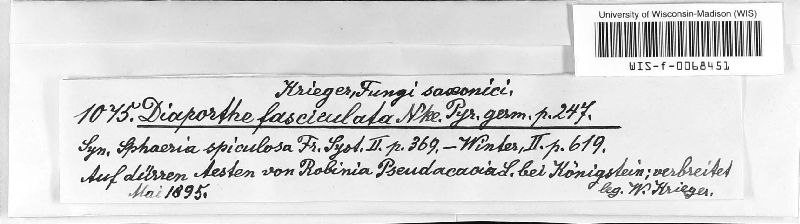 University of Wisconsin-Madison (WIS)
WIS-f-0068451
Krieger, Fungi saxonici.
1075. Diaporthe fasciculata Nke. Pyr. germ. p. 247.
Syn. Sphaeria spiculosa Fr. Syst. II. p. 369. – Winter, II. p. 619.
Auf dürren Aesten von Robinia Pseudacacia L. bei Königstein; verbreitet
Mai 1895. leg. W. Krieger.